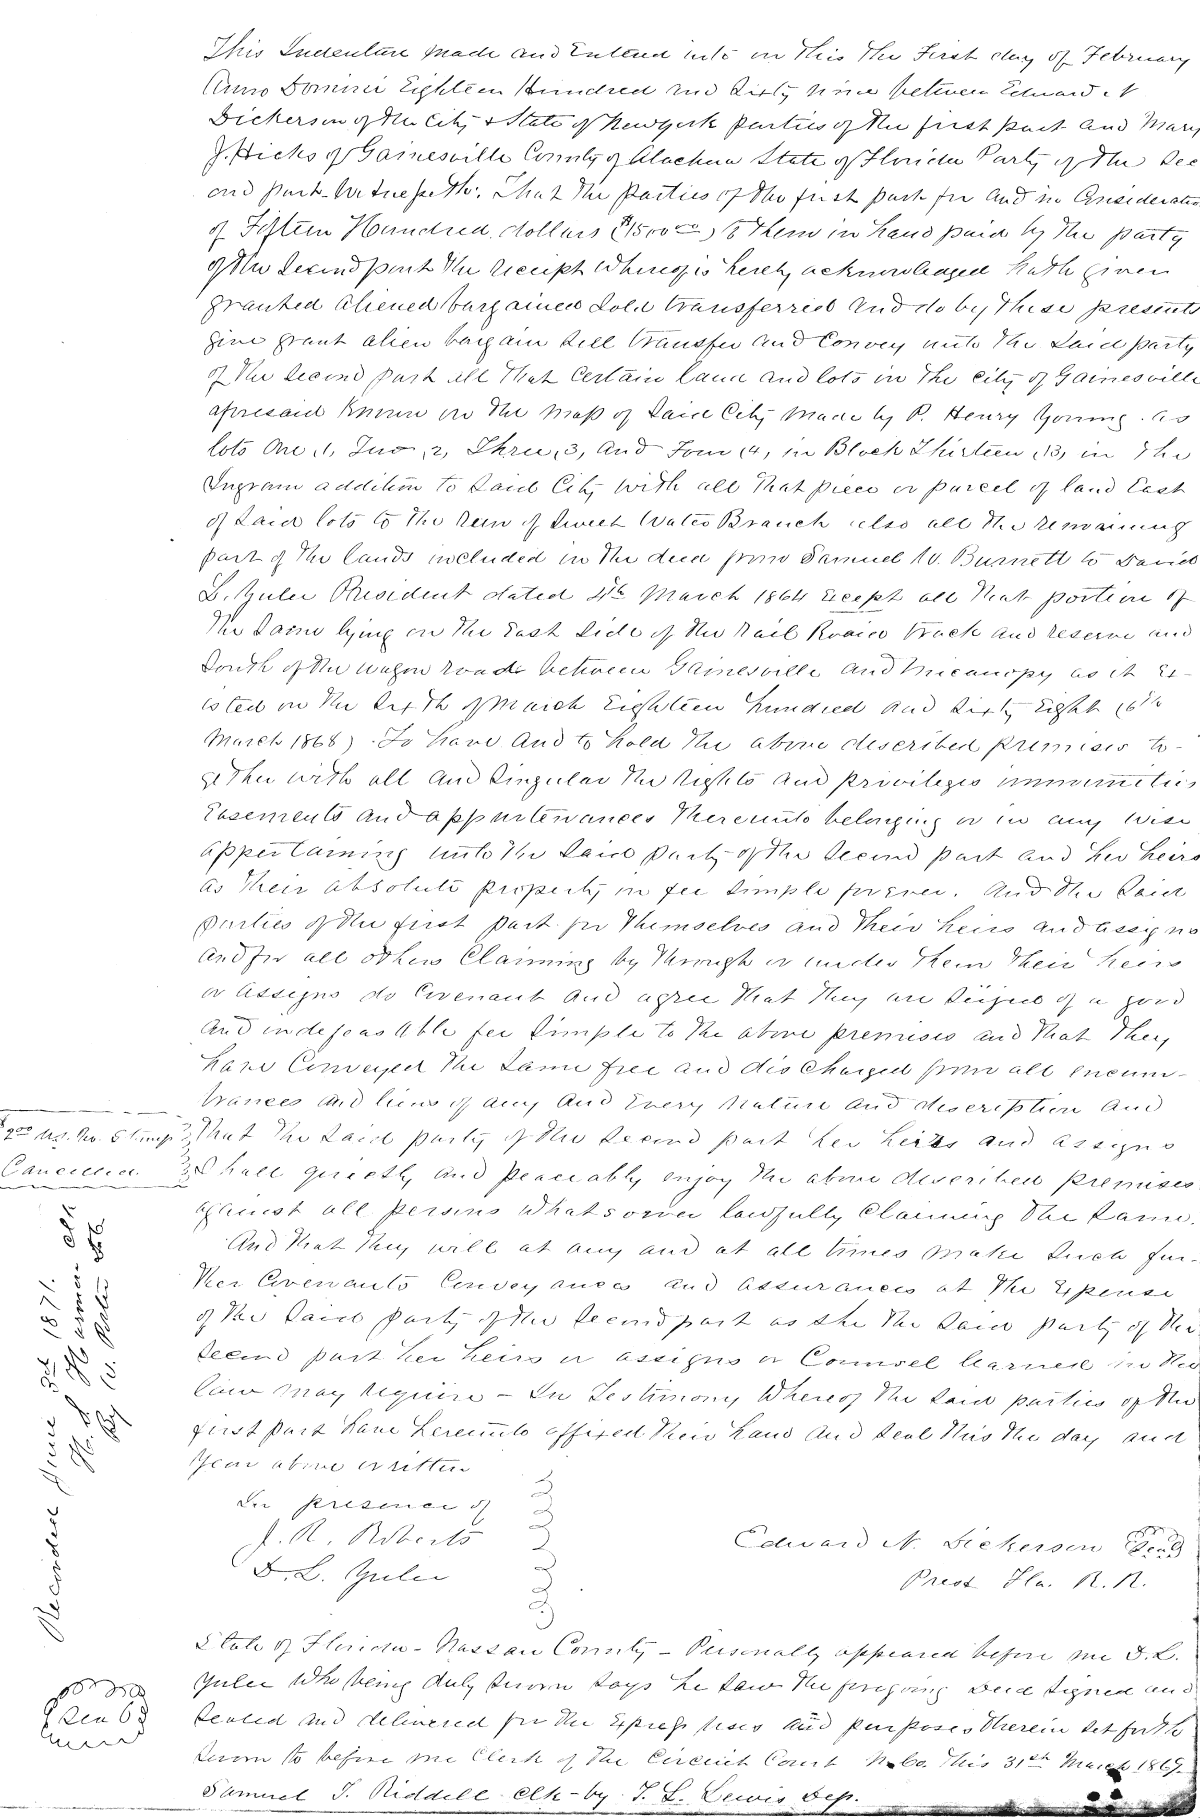 This Indenture made and Entered into on this the First day of February
Anno Domini Eighteen Hundred and Sixty nine between Edward N
Dickerson of the City & State of Newyork parties of the first part and Mary
J. Hicks of Gainesville County of Alachua State of Florida Party of the Sec
ond part. Witnesseth: That the parties of the first part for and in Consideration
of Fifteen Hundred dollars ($1500.00) to them in hand paid by the party
of the Second part the receipt whereof is hereby acknowledged hath given
granted aliened bargained Sold transferred and do by these presents
give grant alien bargain Sell transfer and Convey unto the Said party
of the Second part all that Certain land and lots in the City of Gainesville
aforesaid Known on the map of Said City made by P. Henry Young. as
lots One, 1, Two, 2, Three, 3, and Four, 4, in Block Thirteen, 13, in the
Ingram addition to Said City with all that piece or parcel of land East
of Said lots to the run of Sweet Water Branch also all the remaining
part of the lands included in the deed from Samuel W. Burnett to David
L. Yulee President dated 4th March 1864 Except all that portion of
the Same lying on the East Side of the Rail Road track and reserve and
South of the wagon road between Gainesville and Micanopy as it Ex-
isted on the Sixth of March Eighteen hundred and Sixty Eight (6th
March 1868) To have and to hold the above described premises to-
gether with all and Singular the rights and privileges immunities
Easements and appurtenances thereunto belonging or in any wise
appertaining unto the Said party of the Second part and her heirs
as their absolute property in fee Simple forever. And the Said
parties of the first part for themselves and their heirs and assigns
and for all others Claiming by through or under them their heirs
or assigns do Covenant and agree that they are Seized of a good
and indefeasable fee Simple to the above premises and that they
have Conveyed the Same free and discharged from all encum-
brances and liens of any and Every nature and description and
that the Said party of the Second part her heirs and assigns
Shall quietly and peaceably enjoy the above described premises
against all persons whatsoever lawfully Claiming the Same.
And that they will at any and at all times make Such fur-
ther Covenants Conveyances and assurances at the Expense
of the Said party of the Second part as She the Said party of the
Second part her heirs or assigns or Counsel learned in the
law may require - In Testimony Whereof the Said parties of the
first part have hereunto affixed their hand and Seal this the day and
Year above written
In presence of
J. R. Roberts
D. L. Yulee
Edward N. Dickerson Seal
Prest Fla. R. R.
State of Florida - Nassau County - Personally appeared before me D. L.
Yulee Who being duly Sworn Says he Saw the foregoing Deed Signed and
Sealed and delivered for the Express uses and purposes therein Set forth
Sworn to before me Clerk of the Circuit Court N. Co. this 31st March 1869.
Samuel T. Riddell Clk - by T. L. Lewis Dep.
$2.00 U.S. Rev. Stamp
Cancelled.
Recorded June 3rd 1871.